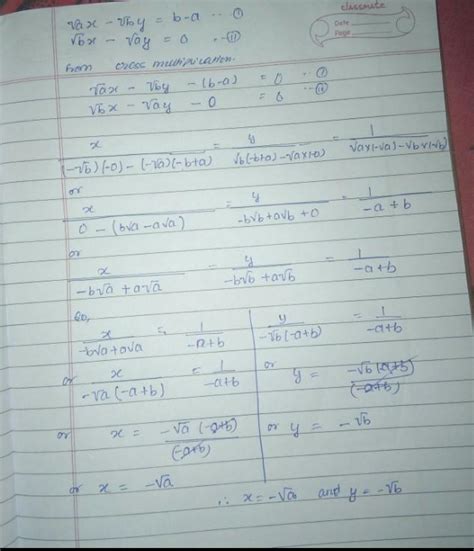 √ax - √by = b-a ... (i)
√bx - √ay = 0 ... (ii)
classmate
Date
Page
from cross multiplication.
√ax - √by - (b-a) = 0 ... (i)
√bx - √ay - 0 = 0 ... (ii)
x/((-√b)(-0) - (-√a)(-b+a)) = y/(√b(-b+a) - √a×(-0)) = 1/(√a×(-√a) - √b×(-√b))
or
x/(0 - (b√a - a√a)) = y/(-b√b + a√b + 0) = 1/(-a + b)
or
x/(-b√a + a√a) = y/(-b√b + a√b) = 1/(-a+b)
So,
x/(-b√a + a√a) = 1/(-a+b)
or x/(-√a (-a+b)) = 1/(-a+b)
or x = -√a (-a+b)/(-a+b)
or x = -√a
y/(-√b(-a+b)) = 1/(-a+b)
or
y = -√b (a+b)/(-a+b)
or y = -√b
∴ x = -√a and y = -√b